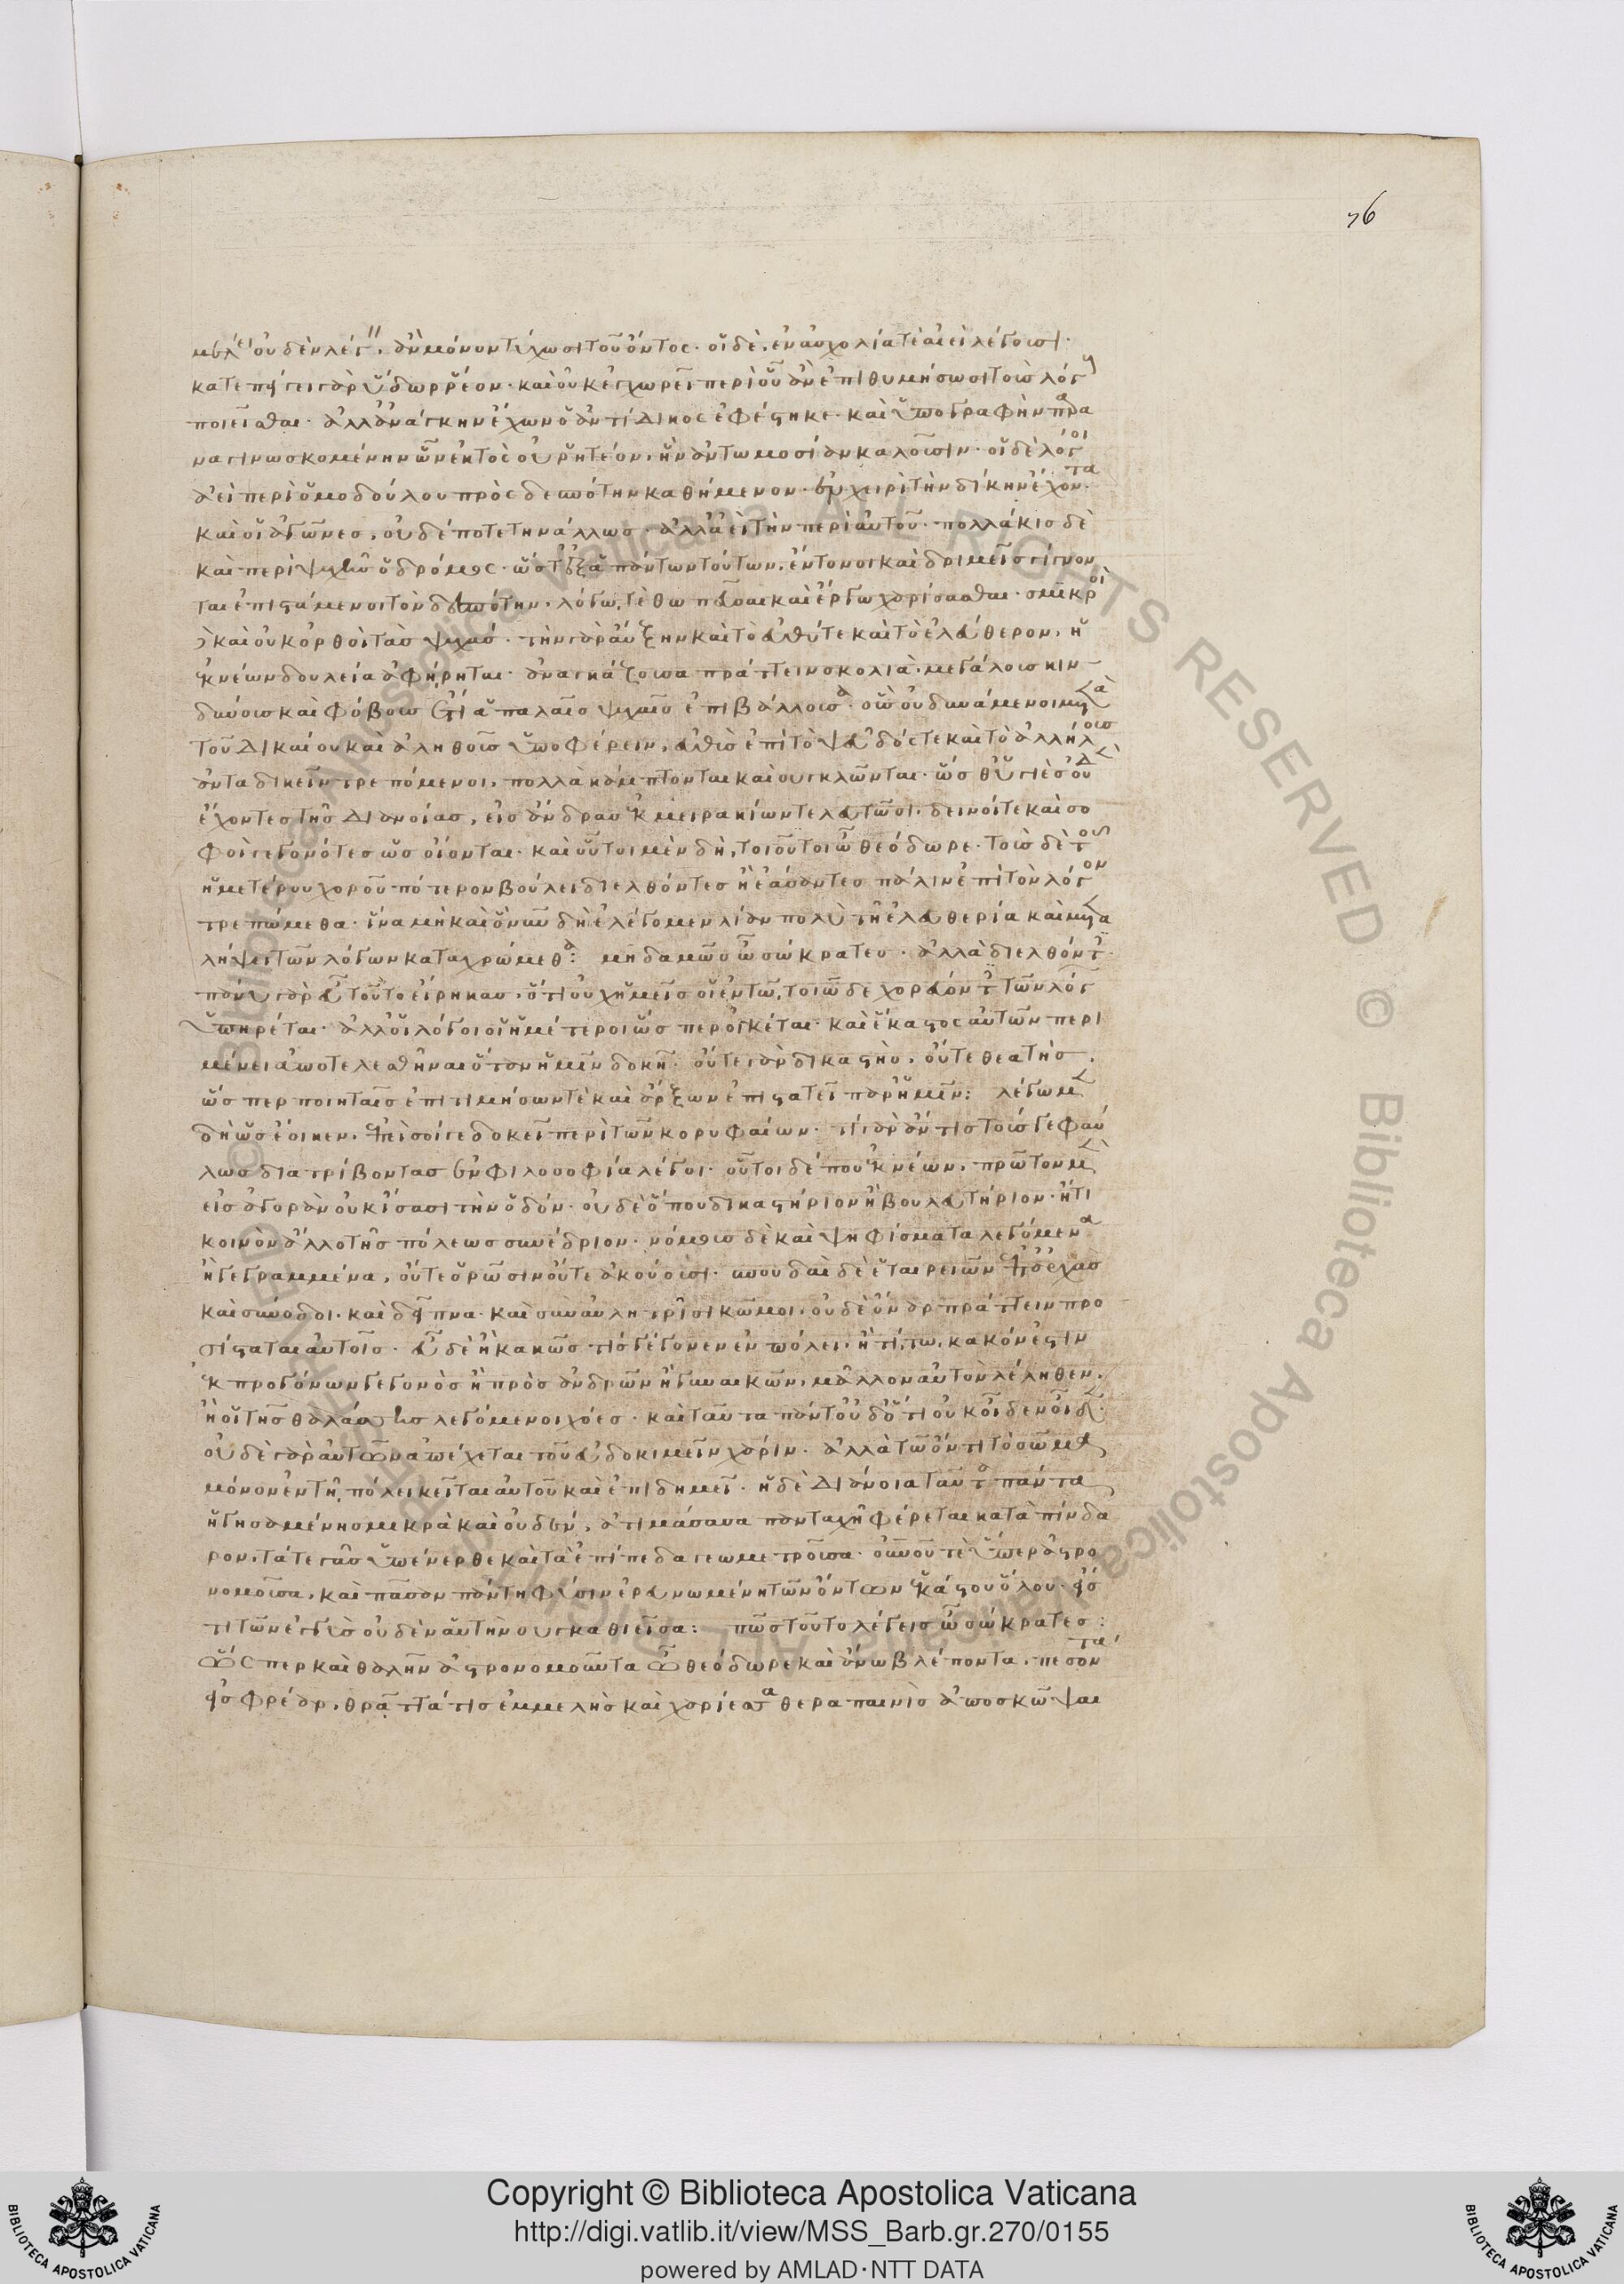 76
μέλει οὐδὲν λέγειν, ἂν μόνον τύχωσι τοῦ ὄντος· οἱ δὲ, ἐν ἀσχολία τὲ ἀεὶ λέγουσι·
κατεπείγει γὰρ ὕδωρ ῥέον· καὶ οὐκ ἐγχωρεῖ περὶ οὗ ἂν ἐπιθυμήσωσι τοὺς λόγους
ποιεῖσθαι· ἀλλ' ἀνάγκην ἔχων ὁ ἀντίδικος ἐφέστηκε· καὶ ὑπογραφὴν παρα
ναγινωσκομένην ὧν ἐκτὸς οὐ ῥητέον, ἣν ἀντωμοσίαν καλοῦσιν· οἱ δὲ λόγοι
ἀεὶ περὶ ὁμοδούλου πρὸς δεσπότην καθήμενον· ἐν χειρὶ τὴν δίκην ἔχοντα·
καὶ οἱ ἀγῶνες, οὐδέποτε τὴν ἄλλως· ἀλλ' ἀεὶ τὴν περὶ αὐτοῦ· πολλάκις δὲ
καὶ περὶ ψυχῆς ὁ δρόμος· ὥστ' ἐξ ἁπάντων τούτων, ἔντονοι καὶ δριμεῖς γίγνον
ται ἐπιστάμενοι τὸν δεσπότην, λόγω, τὲ θωπεῦσαι καὶ ἔργω χαρίσασθαι· σμικροὶ
δὲ καὶ οὐκ ὀρθοὶ τὰς ψυχάς· τὴν γὰρ αὔξην καὶ τὸ εὐθύ τε καὶ τὸ ἐλεύθερον, ἡ
ἐκ νέων δουλεία ἀφήρηται· ἀναγκάζουσα πράττειν σκολιὰ· μεγάλους κιν
δύνους καὶ φόβους ἔτι ἁπαλαῖς ψυχαῖς ἐπιβάλλουσα· οὓς οὐ δυνάμενοι μετὰ
τοῦ δικαίου καὶ ἀληθοῦς ὑποφέρειν, εὐθὺς ἐπὶ τὸ ψεῦδός τε καὶ τὸ ἀλλήλους
ἀνταδικεῖν τρεπόμενοι, πολλὰ κάμπτονται καὶ συγκλῶνται· ὥσθ' ὑγιὲς οὐδὲν
ἔχοντες τῆς διανοίας, εἰς ἄνδρας ἐκ μειρακίων τελευτῶσι· δεινοί τε καὶ σο
φοὶ γεγονότες ὡς οἴονται· καὶ οὗτοι μὲν δὴ, τοιοῦτοι ὦ θεόδωρε· τοὺς δὲ τοῦ
ἡμετέρου χοροῦ πότερον βούλει διελθόντες ἢ ἐάσαντες πάλιν ἐπὶ τὸν λόγον
τρεπώμεθα· ἵνα μὴ καὶ ὃ νῦν δὴ ἐλέγομεν λίαν πολὺ τῆ ἐλευθερία καὶ μετα
λήψει τῶν λόγων καταχρώμεθα: μηδαμῶς ὦ σώκρατες· ἀλλὰ διελθόντες·
πάνυ γὰρ εὖ τοῦτο εἴρηκας, ὅτι οὐχ ἡμεῖς οἱ ἐν τῶ, τοιῶδε χορεύοντες τῶν λόγων
ὑπηρέται· ἀλλ' οἱ λόγοι οἱ ἡμέτεροι ὥσπερ οἰκέται· καὶ ἕκαστος αὐτῶν περι
μένει ἀποτελεσθῆναι ὅταν ἡμῖν δοκῆ· οὔτε γὰρ δικαστὴς, οὔτε θεατὴς,
ὥσπερ ποιηταῖς ἐπιτιμήσων τὲ καὶ ἄρξων ἐπιστατεῖ παρ' ἡμῖν: λέγωμεν
δὴ ὡς ἔοικεν, ἐπεὶ σοί γε δοκεῖ περὶ τῶν κορυφαίων· τί γὰρ ἄν τις τούς γε φαύ
λως διατρίβοντας ἐν φιλοσοφία λέγοι· οὗτοι δέ που ἐκ νέων, πρῶτον μὲν
εἰς ἀγορὰν οὐκ ἴσασι τὴν ὁδόν· οὐδὲ ὅπου δικαστήριον ἢ βουλευτήριον· ἤ τι
κοινὸν ἄλλο τῆς πόλεως συνέδριον· νόμους δὲ καὶ ψηφίσματα λεγόμενα
ἢ γεγραμμένα, οὔτε ὁρῶσιν οὔτε ἀκούουσι· σπουδαὶ δὲ ἑταιρειῶν ἐπ' ἀρχὰς
καὶ σύνοδοι· καὶ δεῖπνα· καὶ σὺν αὐλητρίσι κῶμοι· οὐδὲ ὄναρ πράττειν προ
σίσταται αὐτοῖς· εὖ δὲ ἢ κακῶς τίς γέγονεν ἐν πόλει· ἤ τί, τω, κακόν ἐστιν
ἐκ προγόνων γεγονὸς ἢ πρὸς ἀνδρῶν ἢ γυναικῶν, μᾶλλον αὐτὸν λέληθεν,
ἢ οἱ τῆς θαλάττης λεγόμενοι χόες· καὶ ταῦτα πάντ' οὐδ' ὅτι οὐκ οἶδεν οἶδεν·
οὐδὲ γὰρ αὐτῶν ἀπέχεται τοῦ εὐδοκιμεῖν χάριν· ἀλλὰ τῶ ὄντι τὸ σῶμα
μόνον ἐν τῆ, πόλει κεῖται αὐτοῦ καὶ ἐπιδημεῖ· ἡ δὲ διάνοια ταῦτα πάντα
ἡγησαμένη σμικρὰ καὶ οὐδὲν, ἀτιμάσασα πανταχῆ φέρεται κατὰ πίνδα
ρον, τά τε γᾶς ὑπένερθε καὶ τὰ ἐπίπεδα γεωμετροῦσα· οὐρανοῦ τὲ ὕπερ ἀστρο
νομοῦσα, καὶ πᾶσαν πάντη φύσιν ἐρευνωμένη τῶν ὄντων ἑκάστου ὅλου· εἴς
τι τῶν ἐγγὺς οὐδὲν αὑτὴν συγκαθιεῖσα: πῶς τοῦτο λέγεις ὦ σώκρατες:
ὥσπερ καὶ θαλῆν ἀστρονομοῦντα ὦ θεόδωρε καὶ ἄνω βλέποντα, πεσόντα
εἰς φρέαρ, θρᾷττά τις ἐμμελὴς καὶ χαρίεσσα θεραπαινὶς ἀποσκῶψαι
Copyright © Biblioteca Apostolica Vaticana
http://digi.vatlib.it/view/MSS_Barb.gr.270/0155
powered by AMLAD·NTT DATA